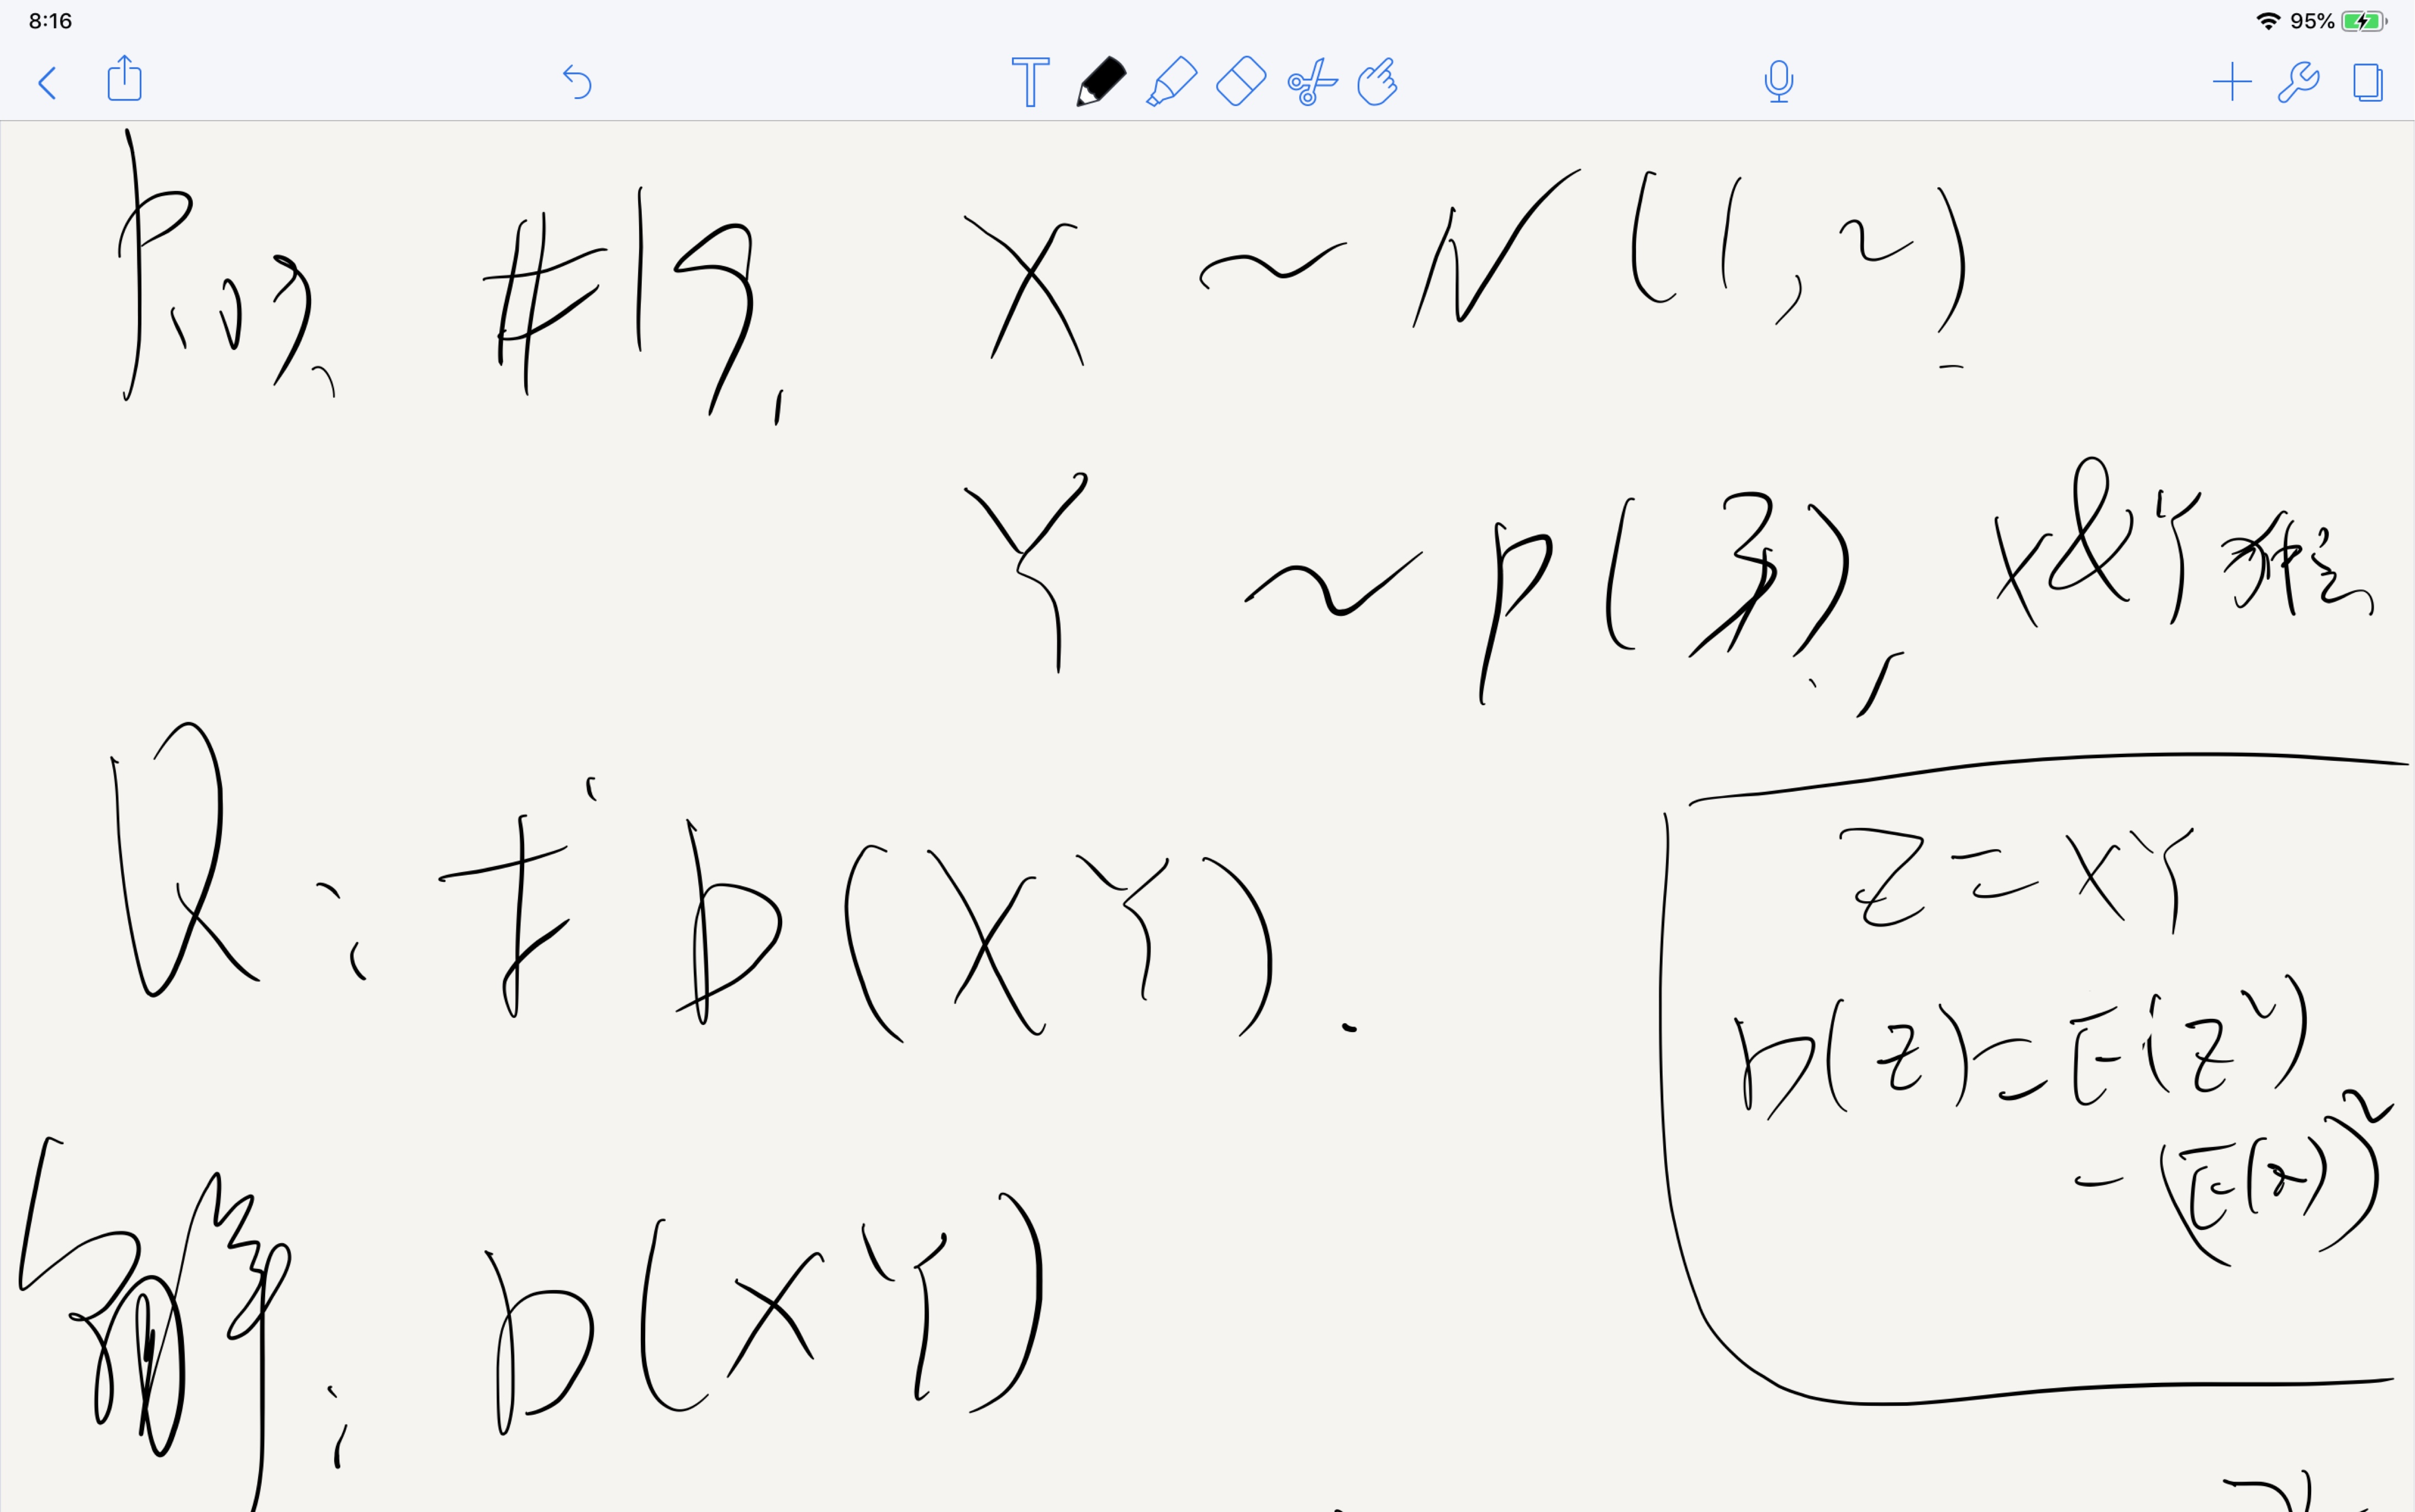 8:16
95%
P.103, #19, X ~ N(1, 2)
Y ~ P(3), X&Y独立
Q: 求 D(XY).
Z = XY
D(Z) = E(Z²)
- (E(Z))²
解: D(XY)